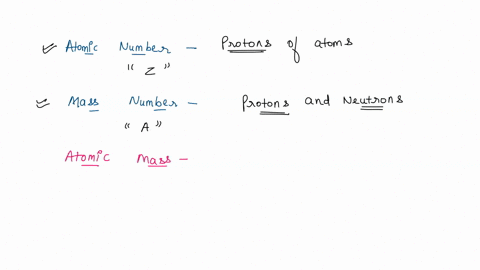 Atomic Number - Protons of atoms
"Z"
Mass Number - Protons and Neutrons
"A"
Atomic Mass -